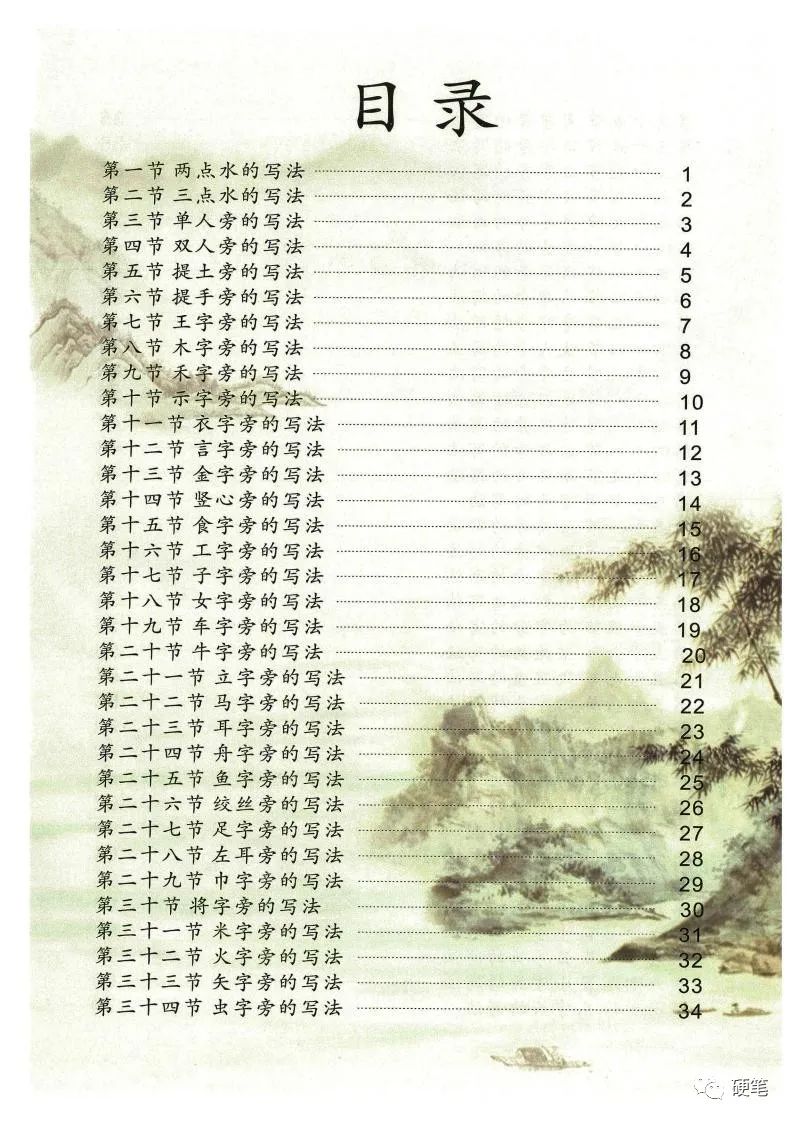 目录
第一节 两点水的写法 1
第二节 三点水的写法 2
第三节 单人旁的写法 3
第四节 双人旁的写法 4
第五节 提土旁的写法 5
第六节 提手旁的写法 6
第七节 王字旁的写法 7
第八节 木字旁的写法 8
第九节 禾字旁的写法 9
第十节 示字旁的写法 10
第十一节 衣字旁的写法 11
第十二节 言字旁的写法 12
第十三节 金字旁的写法 13
第十四节 竖心旁的写法 14
第十五节 食字旁的写法 15
第十六节 工字旁的写法 16
第十七节 子字旁的写法 17
第十八节 女字旁的写法 18
第十九节 车字旁的写法 19
第二十节 牛字旁的写法 20
第二十一节 立字旁的写法 21
第二十二节 马字旁的写法 22
第二十三节 耳字旁的写法 23
第二十四节 舟字旁的写法 24
第二十五节 鱼字旁的写法 25
第二十六节 绞丝旁的写法 26
第二十七节 足字旁的写法 27
第二十八节 左耳旁的写法 28
第二十九节 巾字旁的写法 29
第三十节 将字旁的写法 30
第三十一节 米字旁的写法 31
第三十二节 火字旁的写法 32
第三十三节 矢字旁的写法 33
第三十四节 虫字旁的写法 34
硬笔